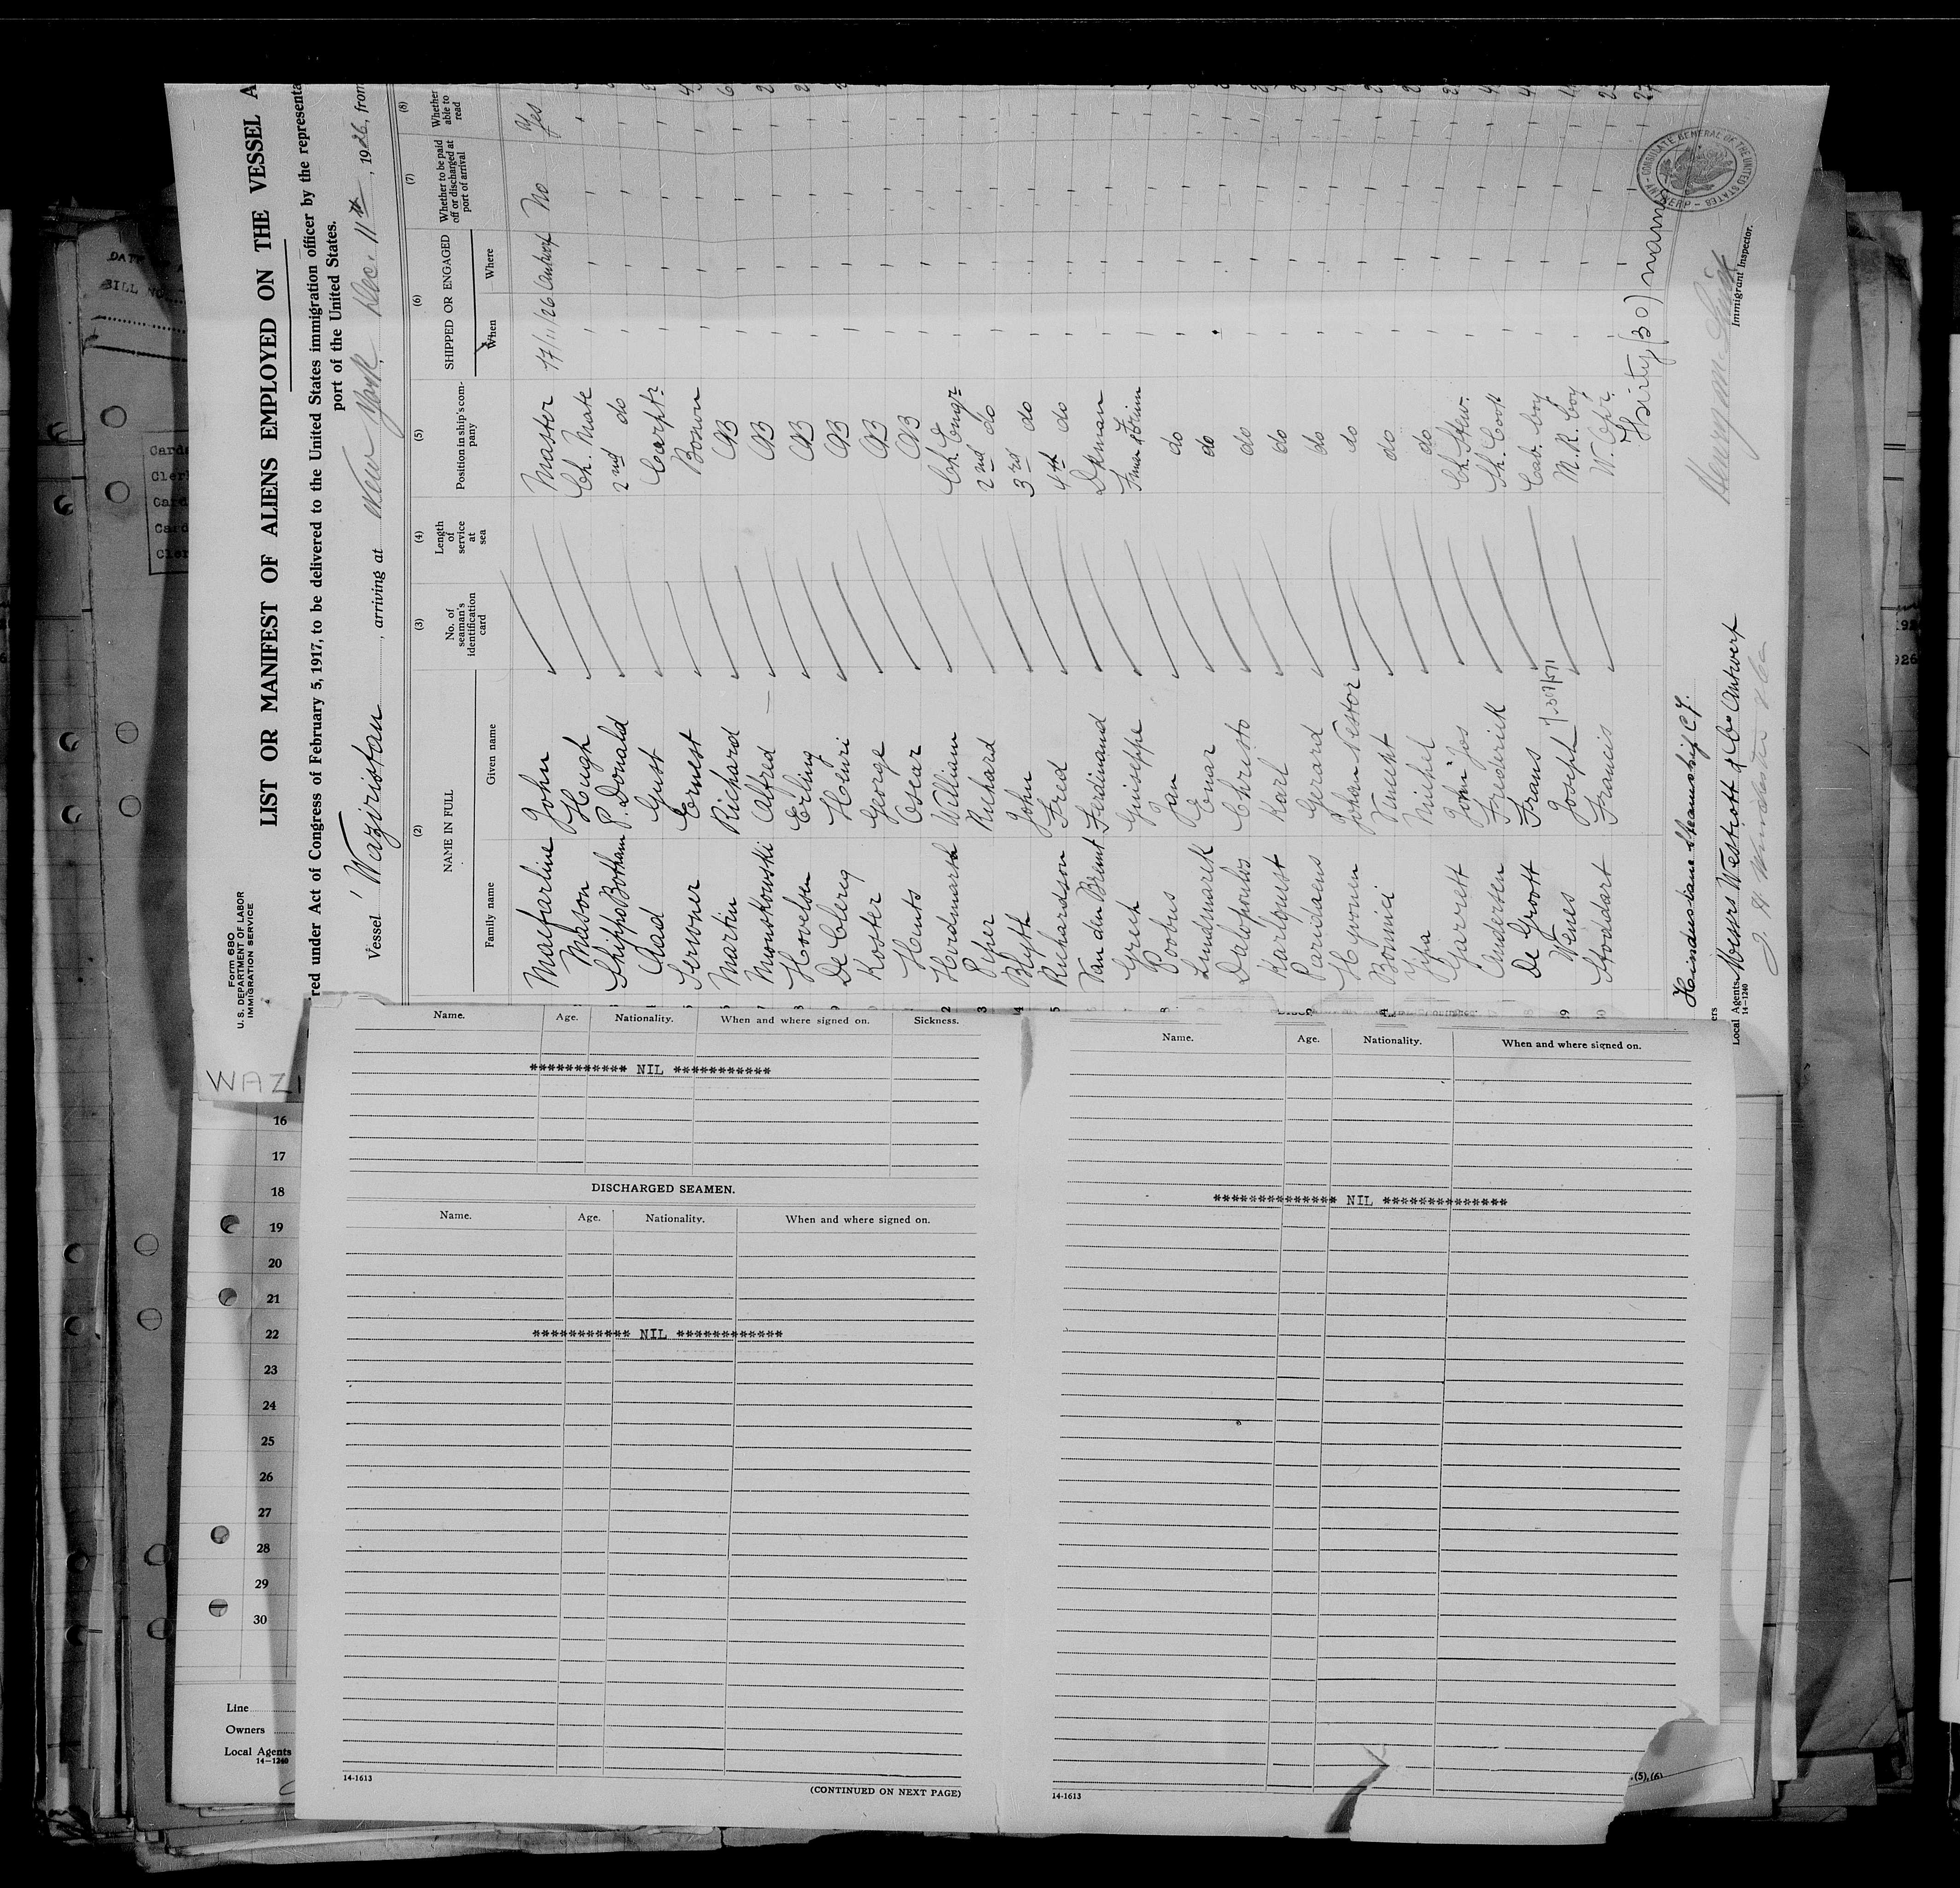 Form 680
U. S. DEPARTMENT OF LABOR
IMMIGRATION SERVICE
LIST OR MANIFEST OF ALIENS EMPLOYED ON THE VESSEL A
red under Act of Congress of February 5, 1917, to be delivered to the United States immigration officer by the representa
port of the United States.
Vessel Waziristan, arriving at New York Dec. 11th, 1926, from
(2) (3) (4) (5) (6) (7) (8)
NAME IN FULL
Family name Given name
No. of seaman's identification card
Length of service at sea
Position in ship's company
SHIPPED OR ENGAGED
When Where
Whether to be paid off or discharged at port of arrival
Whether able to read
Macfarline John Master 17/11/26 Antwerp No Yes
Mason Hugh Ch. Mate
ShippoBotham P. Donald 2nd do
Gad Gust Carptr
Servoner Ernest Bosun
Martin Richard AB
Mionskowski Alfred AB
Hovelsen Erling AB
De Clercq Henri AB
Koster George AB
Hents Oscar AB
Herdmarth William Ch. Engr
Piper Richard 2nd do
Blyth John 3rd do
Richardson Fred 4th do
Van den Brunt Ferdinand Dkman
Grech Guiseppe
Poobus Jun do
Lundmarck Enar do
Dalopoulos Christo do
Karlqust Karl do
Paridaens Gerard do
Hyvonen Johan Nestor do
Bonnici Vincent do
Michel do
Garrett John Jos Ch. Stew.
Andersen Frederik Sh. Cook
De Groott Frans Cab. boy
Wenes Joseph M.R. boy
Stoddart Francis W. Opr.
Thirty (30) names
CONSULATE GENERAL OF THE UNITED STATES
ANTWERP
Henry M
Immigrant Inspector.
Hindustane Steamship Cy.
Local Agents Messrs Westcott & Co Antwerp
14-1240
WAZI
16
17
18
19
20
21
22
23
24
25
26
27
28
29
30
Line
Owners
Local Agents
14-1240
Name. Age. Nationality. When and where signed on. Sickness.
*********** NIL ***********
DISCHARGED SEAMEN.
Name. Age. Nationality. When and where signed on.
*********** NIL ************
14-1613
(CONTINUED ON NEXT PAGE)
Name. Age. Nationality. When and where signed on.
************** NIL **************
14-1613
(5), (6)